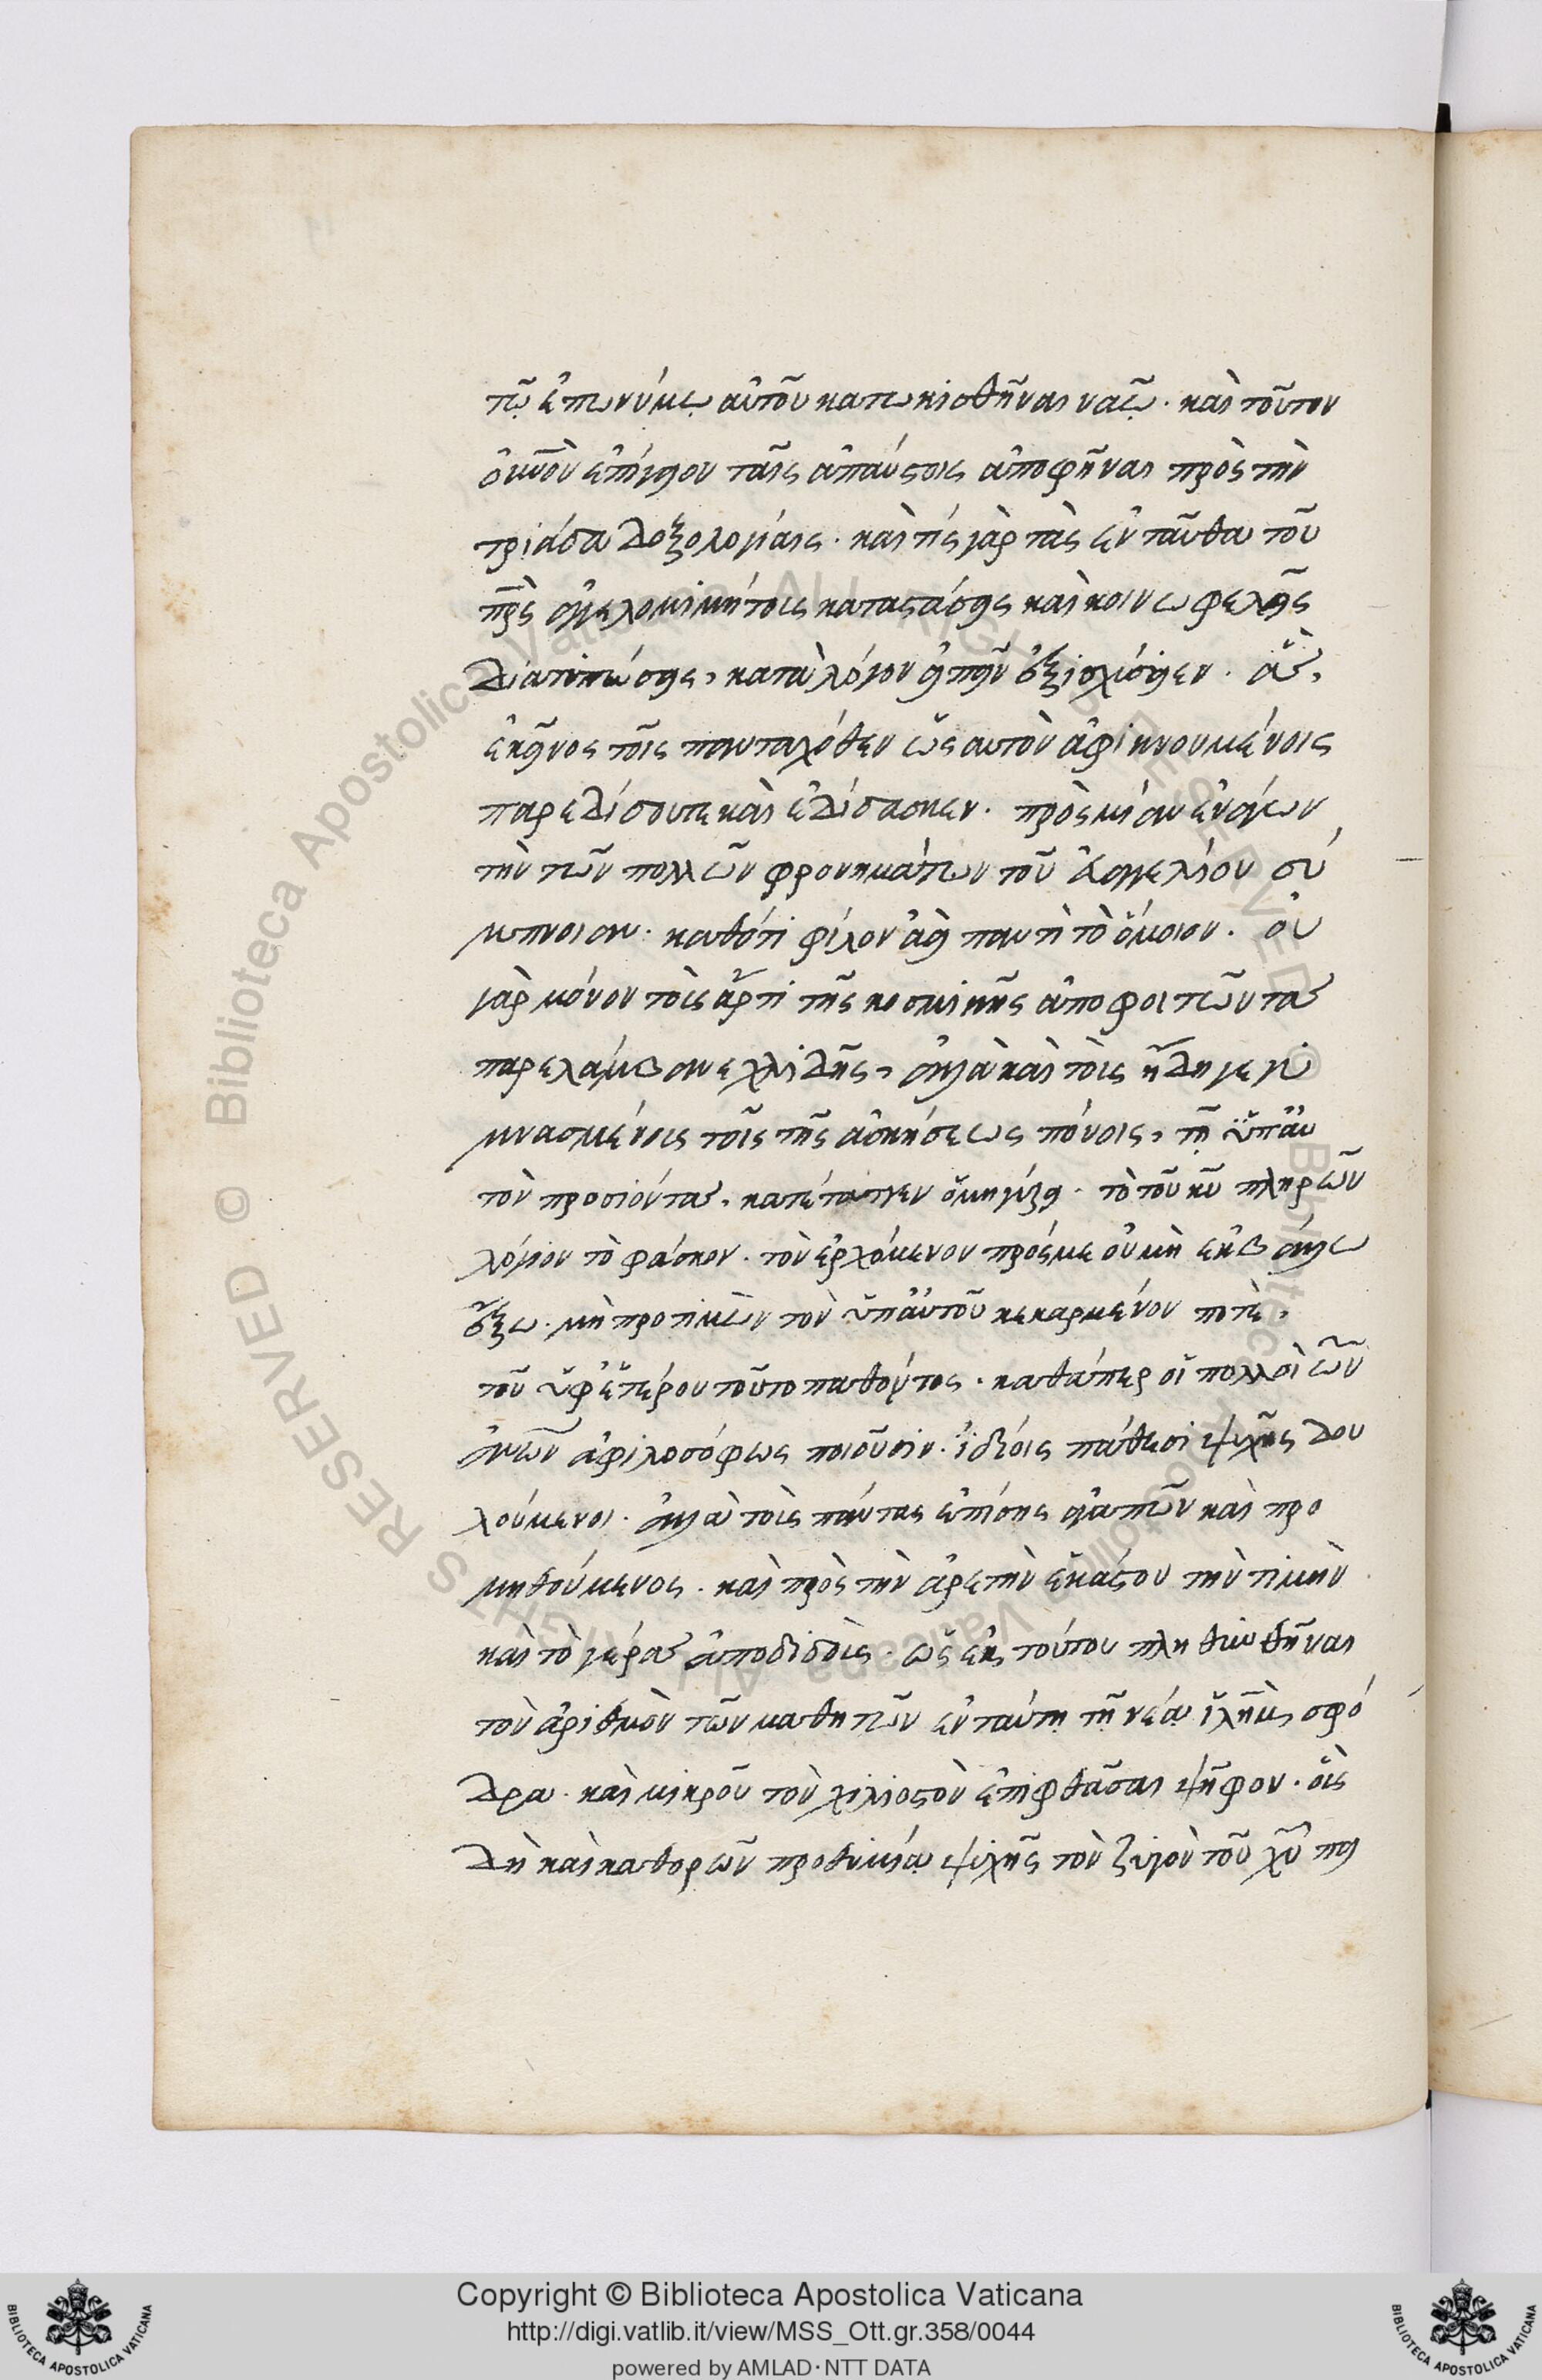 τῷ ἐπωνύμῳ αὐτοῦ κατωκισθῆναι ναῷ. καὶ τοῦτον
οὐνὸν ἐπίγειον ταῖς ἀπαύστοις ἀποφῆναι πρὸς τὴν
τριάδα δοξολογίαις. καὶ τίς γὰρ τὰς ἐνταῦθα τοῦ
πρς ἀγγελομιμήτους καταστάσεις καὶ κοινωφελεῖς
διατυπώσεις, κατὰ λόγον εἰπεῖν ἐξισχύσειεν. ἃς,
ἐκεῖνος τοῖς πανταχόθεν ὡς αὐτὸν ἀφικνουμένοις
παρεδίδου τε καὶ ἐδίδασκεν. πρὸς μίαν ἐνάγων
τὴν τῶν πολλῶν φρονημάτων τοῦ εὐαγγελίου σύ
μπνοιαν. καθότι φίλον ἀεὶ παντὶ τὸ ὅμοιον. οὐ
γὰρ μόνον τοὺς ἄρτι τῆς κοσμικῆς ἀποφοιτῶντας
παρελάμβανε χλιδῆς, ἀλλὰ καὶ τοὺς ἤδη γεγυ
μνασμένους τοῖς τῆς ἀσκήσεως πόνοις, τῇ ὑπ' αὐ
τὸν προσιόντας, κατέταττεν ὁμηγύρει. τὸ τοῦ κυ πληρῶν
λόγιον τὸ φάσκον. τὸν ἐρχόμενον πρός με οὐ μὴ ἐκβάλω
ἔξω. μὴ προτιμῶν τὸν ὑπ' αὐτοῦ κεκαρμένον ποτὲ,
τοῦ ὑφ' ἑτέρου τοῦτο παθόντος. καθάπερ οἱ πολλοὶ τῶν
ἀνων ἀφιλοσόφως ποιοῦσιν. ἰδίοις πάθεσι ψυχῆς δου
λούμενοι. ἀλλὰ τοὺς πάντας ἐπίσης ἀγαπῶν καὶ προ
μηθούμενος. καὶ πρὸς τὴν ἀρετὴν ἑκάστου τὴν τιμὴν
καὶ τὸ γέρας ἀποδιδοὺς. ὡς ἐκ τούτου πληθυνθῆναι
τὸν ἀριθμὸν τῶν μαθητῶν ἐν ταύτῃ τῇ νέᾳ ἰλημ, σφό
δρα. καὶ μικροῦ τὸν χιλιοστὸν ἐπιφθᾶσαι ψῆφον. οὓς
δὴ καὶ καθορῶν προθυμίᾳ ψυχῆς τὸν ζυγὸν τοῦ χυ πει
Copyright © Biblioteca Apostolica Vaticana
http://digi.vatlib.it/view/MSS_Ott.gr.358/0044
powered by AMLAD·NTT DATA